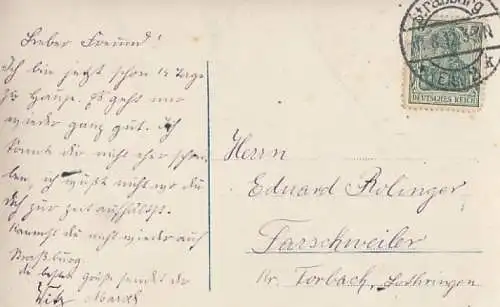 Lieber Freund!
Ich bin jetzt schon 14 Tage
zu Hause. Es geht mir
wieder ganz gut. Ich
konnte dir nicht eher schrei-
ben, ich wußte nicht wo du
dich zur zeit aufhältst.
Kommst du nicht wieder auf
Straßburg.
die besten grüße sendet dir
Straßburg
DEUTSCHES REICH
Herrn
Eduard Rolinger
Farschweiler
Kr. Forbach, Lothringen